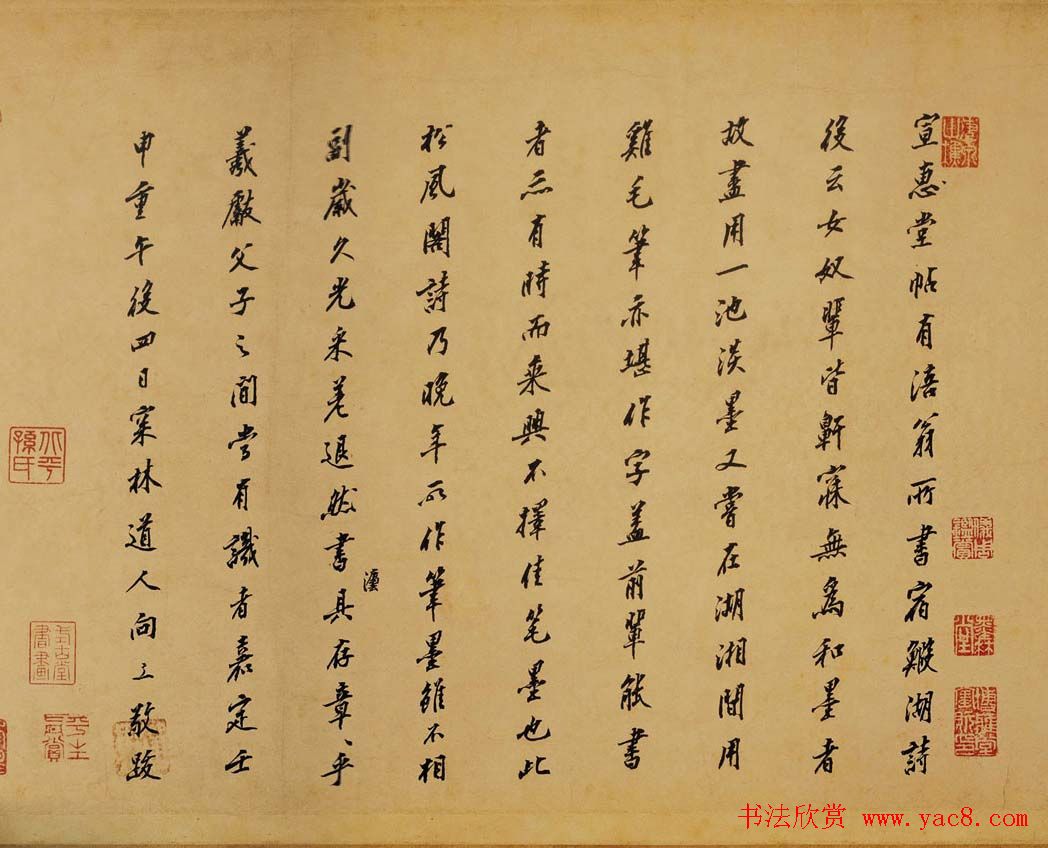 宣惠堂帖有涪翁所書宿鰕湖詩
後云女奴輩皆鼾寐無為和墨者
故盡用一池淡墨又嘗在湖湘間用
雞毛筆亦堪作字盖前輩能書
者亦有時而乘興不擇佳笔墨也此
松風閣詩乃晚年所作筆墨雖不相
副歲久光采差退然書灋具存章、乎
羲獻父子之間當有識者嘉定壬
申重午後四日寀林道人向水敬跋
北平孫氏
式古堂書畫
书法欣赏 www.yac8.com